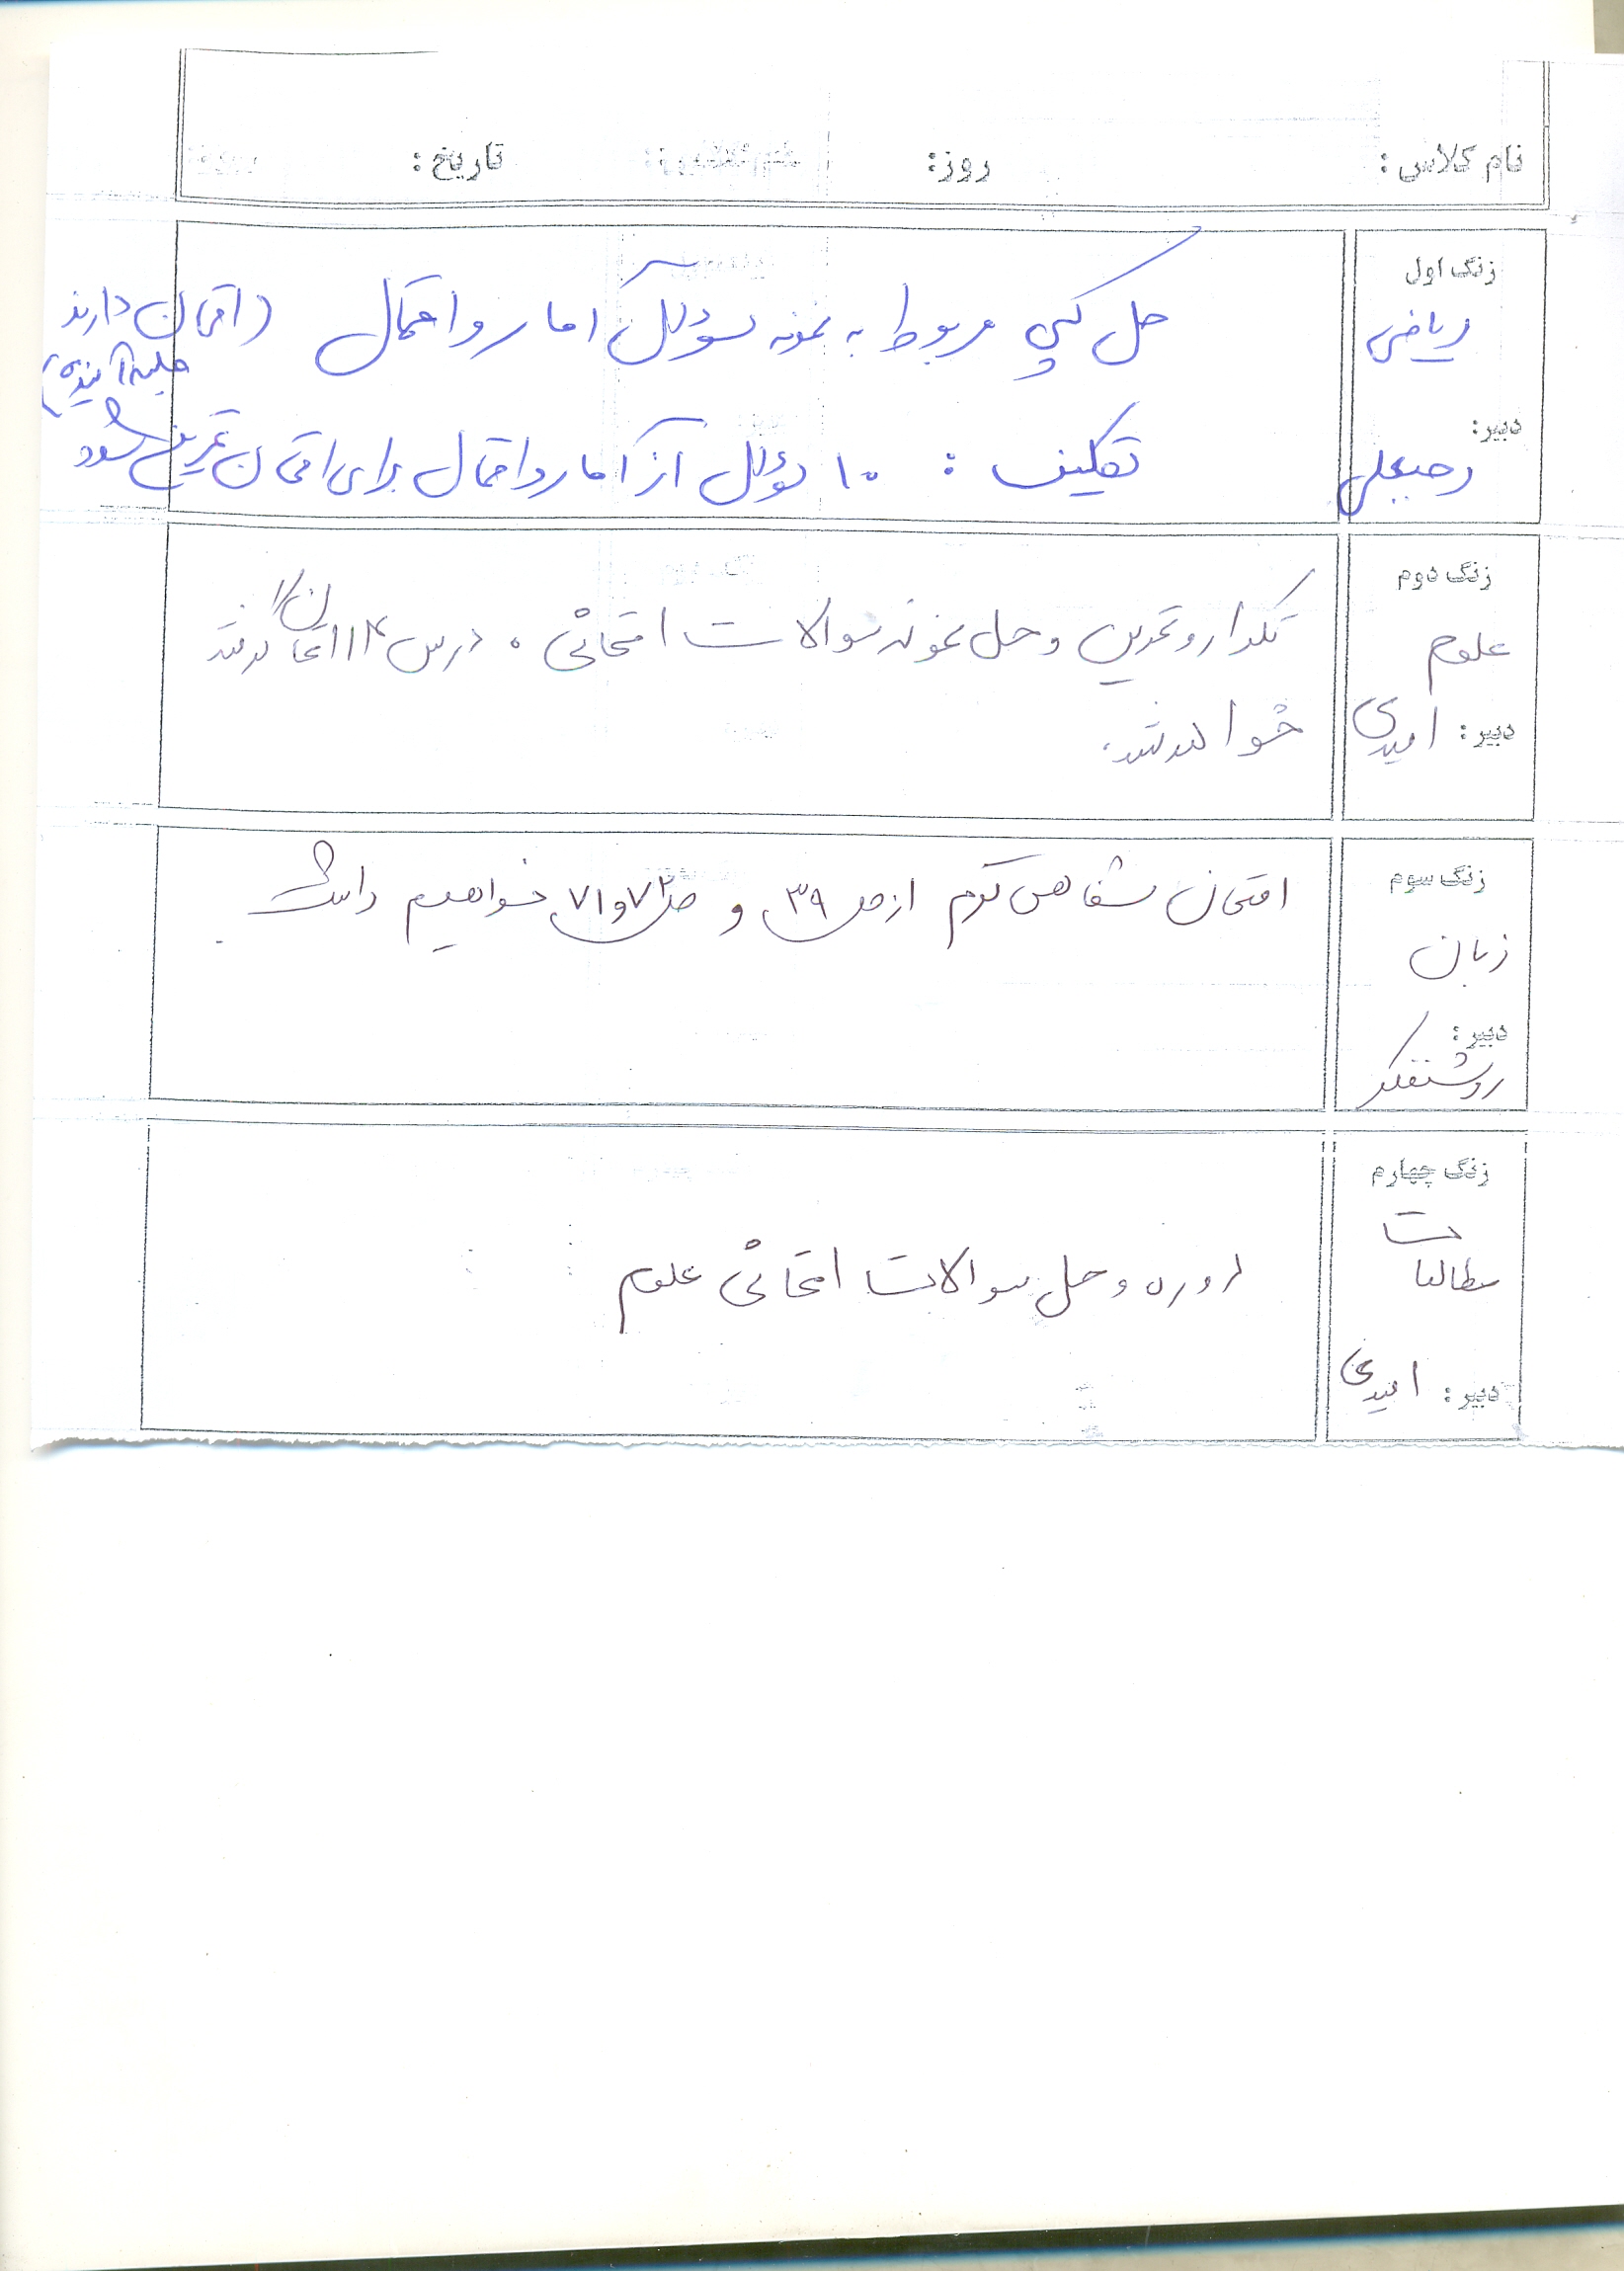 نام کلاس: روز: تاریخ:
زنگ اول
ریاضی
دبیر:
رجبعلی
حل کپی مربوط به نمونه سؤال آمار و احتمال (امتحان دارند
جلسه آینده)
تکلیف: ۱۰ سؤال از آمار و احتمال برای امتحان تمرین شود
زنگ دوم
علوم
دبیر: امیدی
تکرار و تمرین و حل نمونه سوالات امتحانی. درس ۱۴ امتحان گرفته
خواهد شد.
زنگ سوم
زبان
دبیر:
روشنفکر
امتحان شفاهی ترم از ص ۳۹ و ص ۷۲ و ۷۱ خواهیم داشت.
زنگ چهارم
مطالعات
دبیر: امیدی
دوره و حل سوالات امتحانی علوم